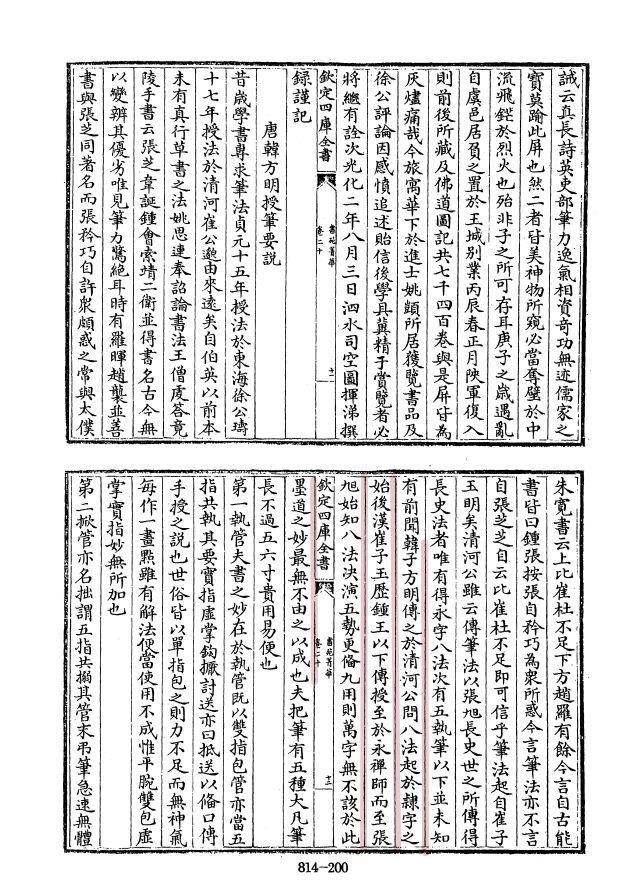 誡云真長詩英吏部筆力逸氣相資奇功無迹儒家之
寶莫踰此屏也然二者皆美神物所窺必當奪壁於中
流飛鎹於烈火也殆非子之所可存耳庚子之歲遇亂
自虞邑居負之置於王城別業丙辰春正月陝軍復入
則前後所藏及佛道圖記共七千四百卷與是屏皆為
灰燼痛哉今旅寓華下於進士姚顗所居獲覽書品及
徐公評論因感憤追述貽信後學且冀精于賞覽者必
將繼有詮次光化二年八月三日泗水司空圖揮涕撰
欽定四庫全書
書苑菁華
卷二十
十二
錄謹記
唐韓方明授筆要說
昔歲學書專求筆法貞元十五年授法於東海徐公璹
十七年授法於清河崔公邈由來遠矣自伯英以前本
未有真行草書之法姚思連奉詔論書法王僧虔答竟
陵手書云張芝韋誕鍾會索靖二衞並得書名古今無
以變辨其優劣唯見筆力驚絕耳時有羅暉趙襲並善
書與張芝同著名而張矜巧自許衆頗惑之常與太僕
朱寬書云上比崔杜不足下方趙羅有餘今言自古能
書皆曰鍾張按張自矜巧為衆所惑今言筆法亦不言
自張芝芝自云比崔杜不足即可信乎筆法起自崔子
玉明矣清河公雖云傳筆法以張旭長史世之所傳得
長史法者唯有得永字八法次有五執筆以下並未知
有前聞韓子方明傳之於清河公問八法起於隸字之
始後漢崔子玉歷鍾王以下傳授至於永禪師而至張
旭始知八法決演五勢更備九用則萬字無不該於此
欽定四庫全書
書苑菁華
卷二十
十三
墨道之妙最無不由之以成也夫把筆有五種大凡筆
長不過五六寸貴用易便也
第一執管夫書之妙在於執管既以雙指包管亦當五
指共執其要實指虛掌鈎擫討送亦曰抵送以備口傳
手授之說也世俗皆以單指包之則力不足而無神氣
每作一畫點雖有解法便當使用不成惟平腕雙包虛
掌實指妙無所加也
第二㧪管亦名拙謂五指共搦其管末弔筆急速無體
814-200